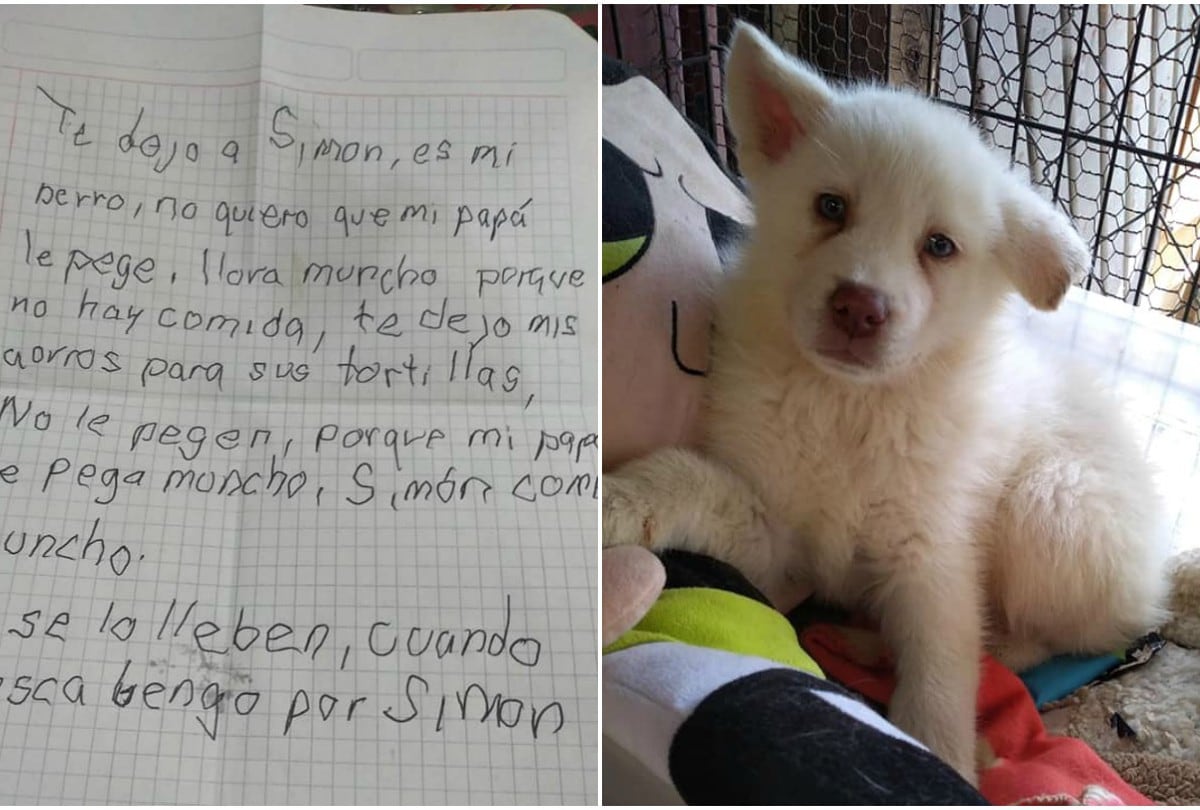 Te dejo a Simon, es mi
perro, no quiero que mi papá
le pege, llora muncho porque
no hay comida, te dejo mis
aorros para sus tortillas,
No le pegen, porque mi papa
e pega muncho, Simón com
uncho.
se lo lleben, cuando
sca bengo por Simon